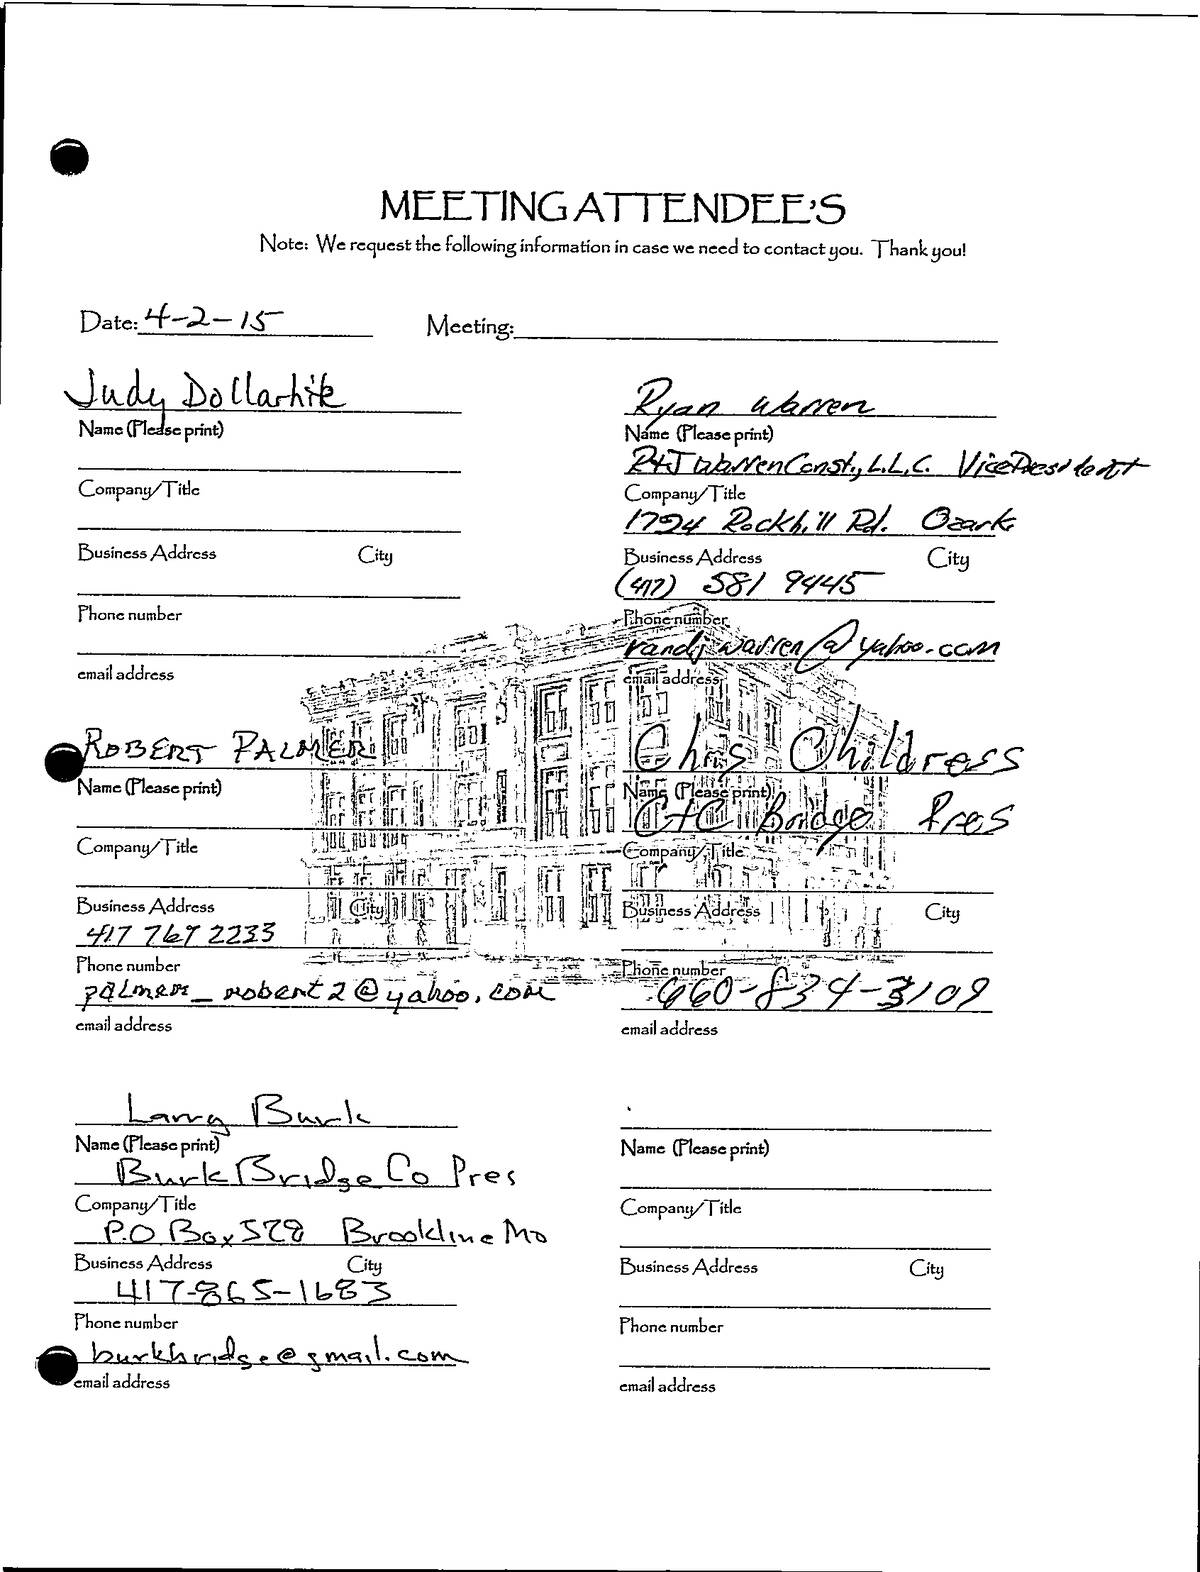 MEETING ATTENDEE'S
Note: We request the following information in case we need to contact you. Thank you!
Date: 4-2-15 Meeting:
Judy Dollarhite
Name (Please print)
Company/Title
Business Address City
Phone number
email address
Ryan Warren
Name (Please print)
R+J Warren Const., L.L.C. Vice President
Company/Title
1794 Rockhill Rd. Ozark
Business Address City
(417) 581 9445
Phone number
randjwarren@yahoo.com
email address
ROBERT PALMER
Name (Please print)
Company/Title
Business Address City
417 769 2233
Phone number
palmer_robert2@yahoo.com
email address
Chris Childress
Name (Please print)
C+C Bridge Pres
Company/Title
Business Address City
Phone number
660-834-3109
email address
Larry Burk
Name (Please print)
Burk Bridge Co Pres
Company/Title
P.O Box 528 Brookline Mo
Business Address City
417-865-1683
Phone number
burkbridge@gmail.com
email address
Name (Please print)
Company/Title
Business Address City
Phone number
email address